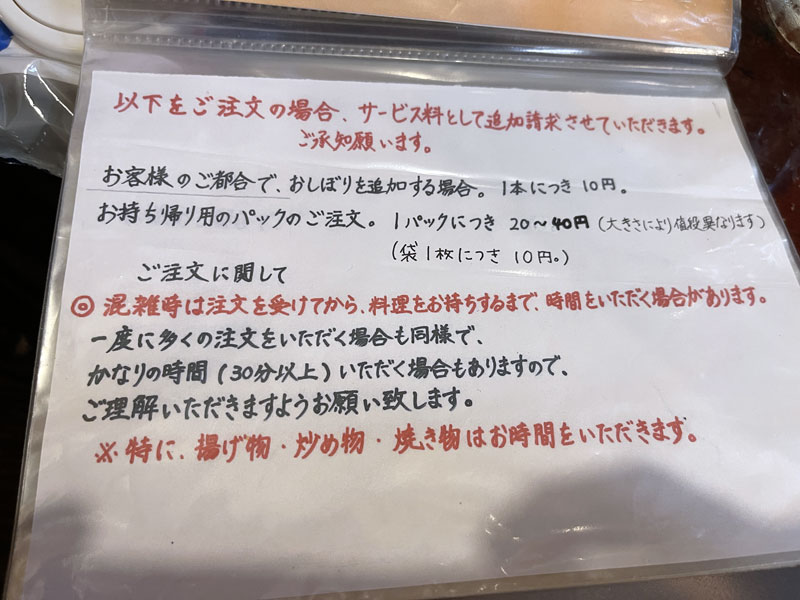 以下をご注文の場合、サービス料として追加請求させていただきます。
ご承知願います。
お客様のご都合で、おしぼりを追加する場合。1本につき10円。
お持ち帰り用のパックのご注文。1パックにつき20〜40円(大きさにより値段異なります)
(袋1枚につき10円。)
ご注文に関して
◎混雑時は注文を受けてから、料理をお持ちするまで、時間をいただく場合があります。
一度に多くの注文をいただく場合も同様で、
かなりの時間(30分以上)いただく場合もありますので、
ご理解いただきますようお願い致します。
※特に、揚げ物・炒め物・焼き物はお時間をいただきます。